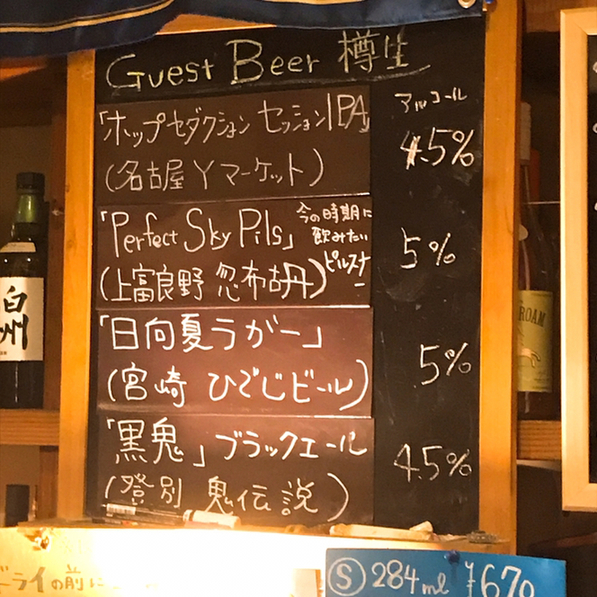 Guest Beer 樽生
アルコール
「ホップセダクション セッションIPA」
4.5%
(名古屋 Yマーケット)
「Perfect Sky Pils」
今の時期に
飲みたい
ピルスナー
5%
(上富良野 忽布古丹)
「日向夏ラガー」
5%
(宮崎 ひでじビール)
「黒鬼」ブラックエール
4.5%
(登別 鬼伝説)
白
州
ROAM
ドライの前に
S 284ml ¥670